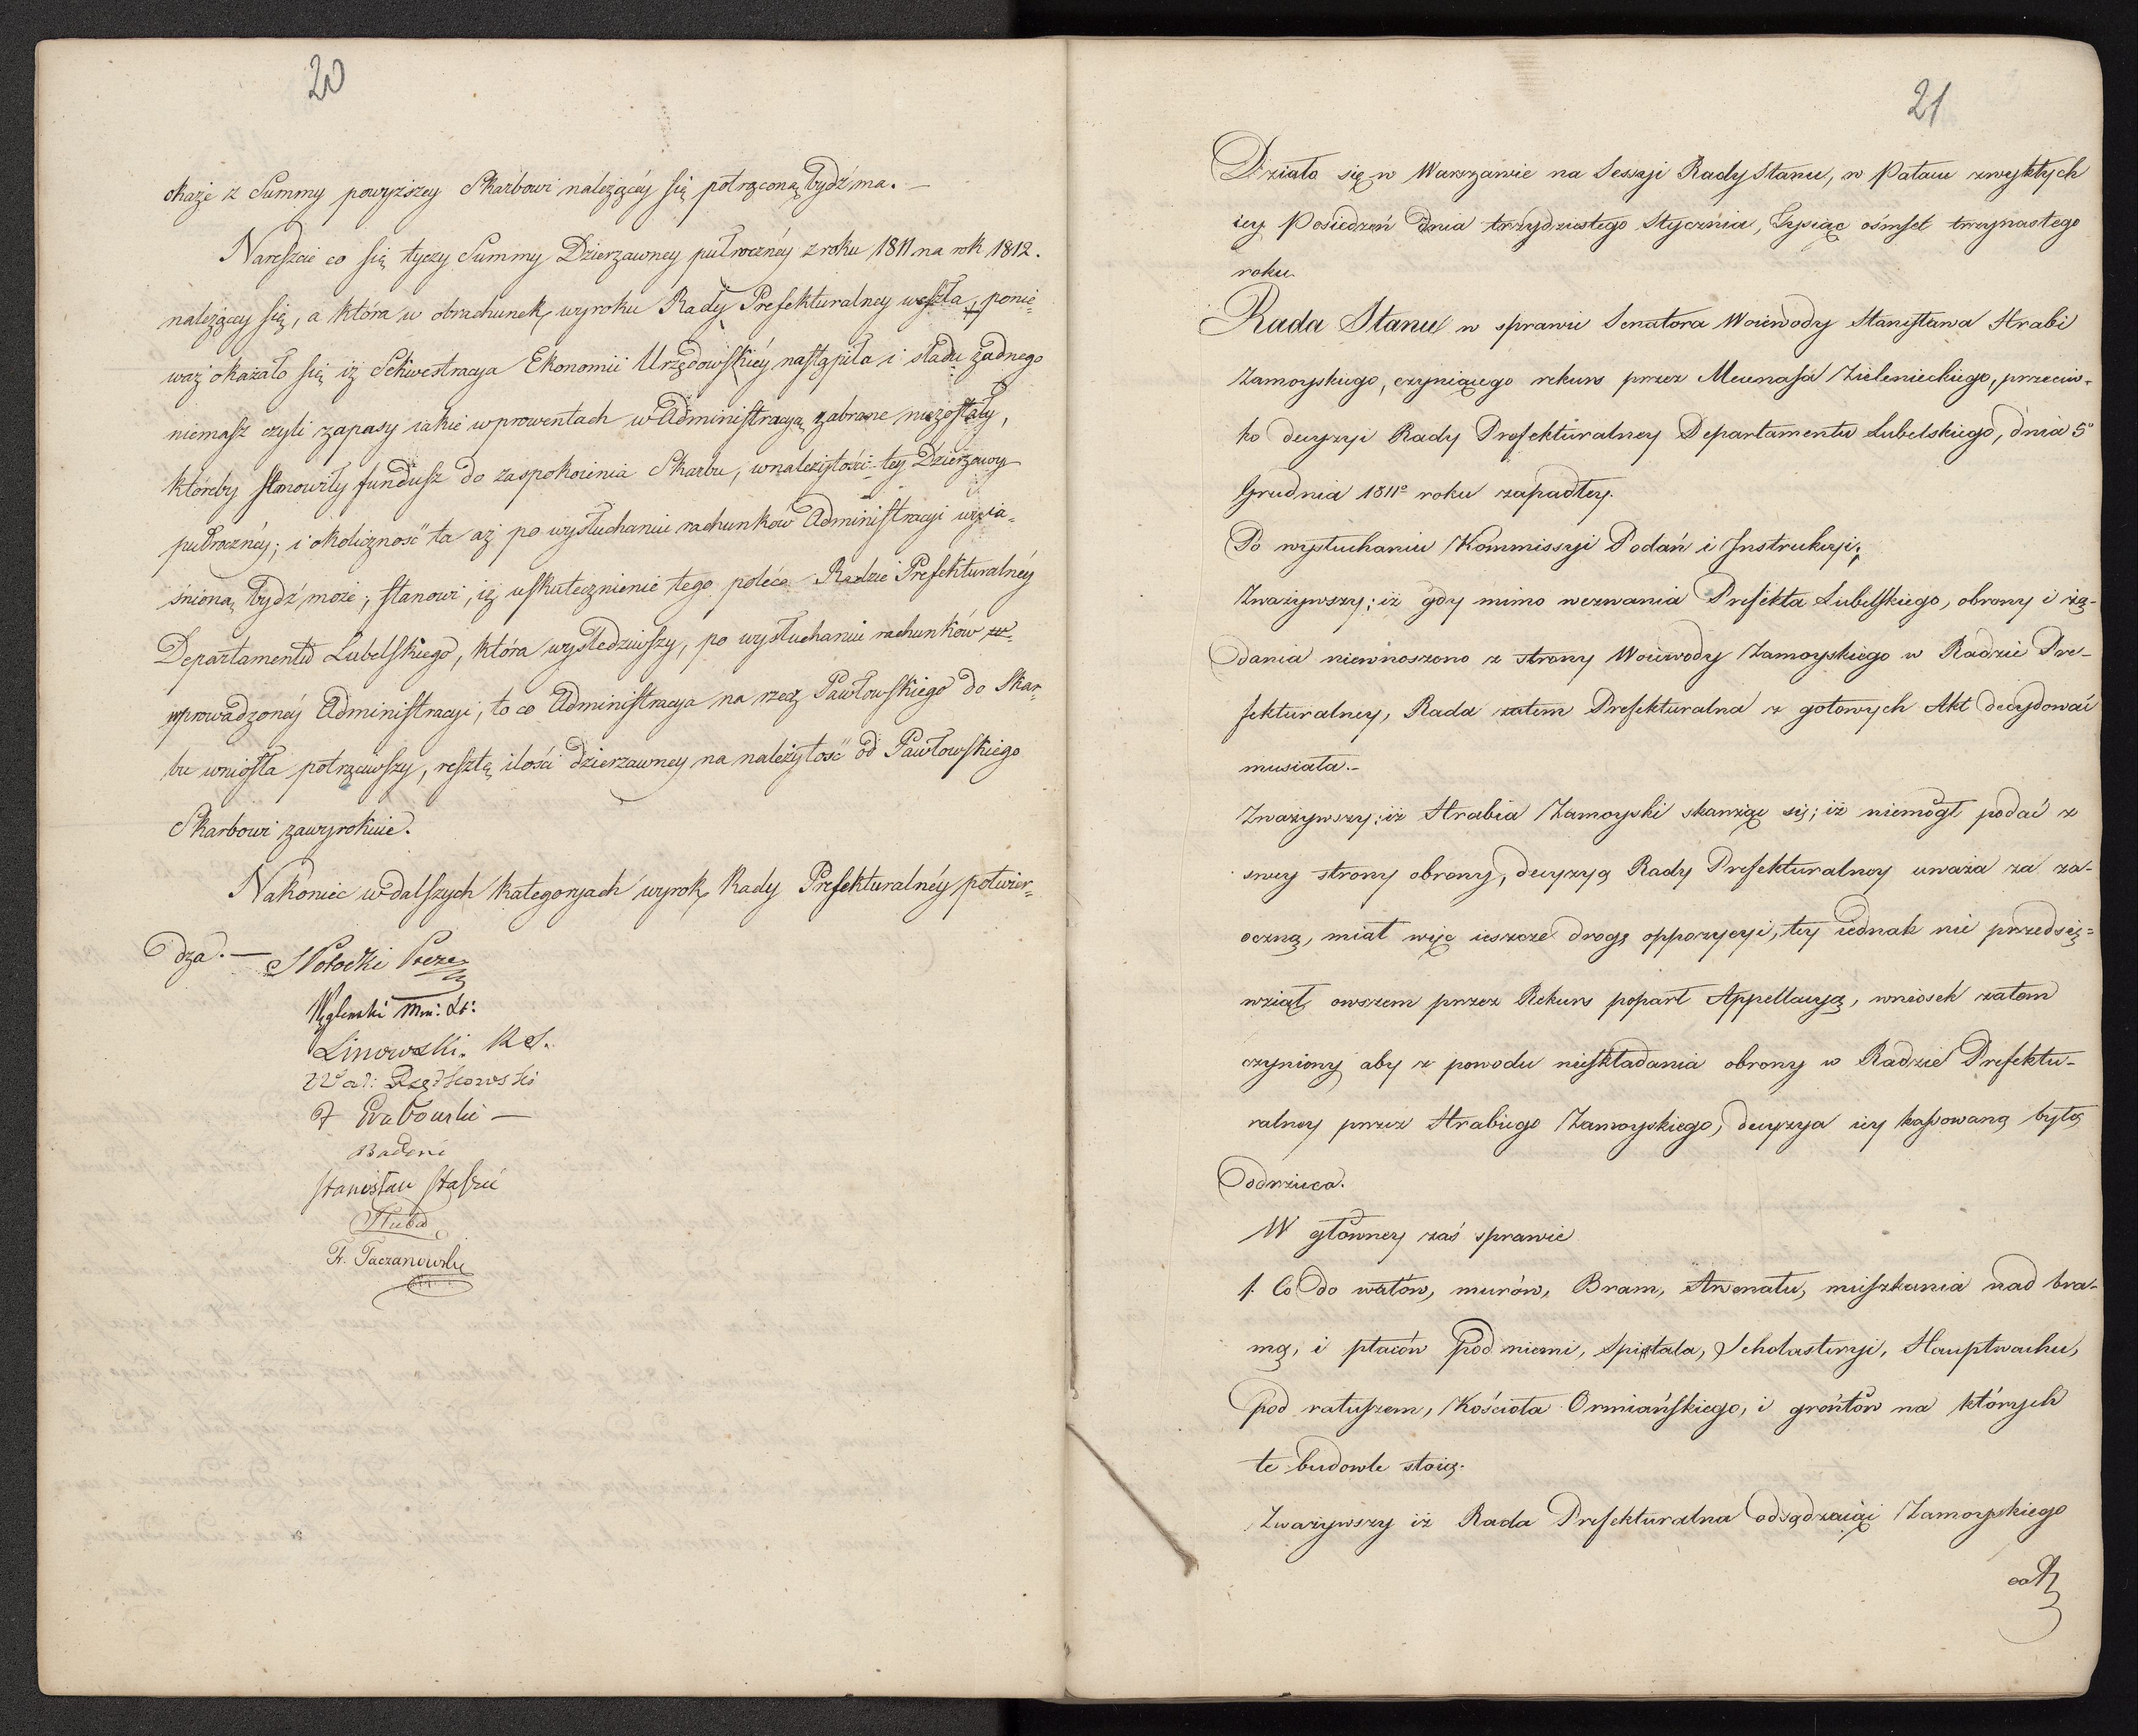 20
okaże z Summy powyższey Skarbowi należącéy się potrąconą bydź ma. —
Nareszcie co się tyczy Summy Dzierzawney półrocznéy z roku 1811 na rok 1812.
należącey się, a która w obrachunek wyroku Rady Prefekturalney weszła, ponie=
waż okazało się iż Sekwestracya Ekonomii Urzędowskiéy nastąpiła i śladu żadnego
niemasz czyli zapasy iakie w prowentach w Administracyą zabrane niezostały,
któreby stanowiły fundusz do zaspokoienia Skarbu, w należytości tey Dzierzawy
półrocznéy; i okoliczność ta aż po wysłuchaniu rachunków Administracyi wyia=
śnioną bydź może; stanowi, iż uskutecznienie tego poleca Radzie Prefekturalnéy
Departamentu Lubelskiego, która wyśledziwszy, po wysłuchaniu rachunków
wprowadzonéy Administracyi, to co Administracya na rzecz Pawłowskiego do Skar=
bu wniosła potrąciwszy, resztę ilości dzierzawney na należytość od Pawłowskiego
Skarbowi zawyrokuie.
Nakoniec w dalszych kategoryach wyrok Rady Prefekturalnéy potwier=
dza. — S Potocki Prezes
Węgleński Min:
Linowski. R S.
Wal: Rzętkowski
Grabowski —
Badeni
Stanisław Staszic
Hube
Fr. Taczanowski
21
Działo się w Warszawie na Sessyi Rady Stanu, w Pałacu zwykłych
iey Posiedzeń dnia trzydziestego Stycznia, Tysiąc ośmset trzynastego
roku.
Rada Stanu w sprawie Senatora Woiewody Stanisława Hrabi
Zamoyskiego, czyniącego rekurs przez Mecenasa Zielenieckiego, przeciw-
ko decyzyi Rady Prefekturalney Departamentu Lubelskiego, dnia 5º
Grudnia 1811º roku zapadłey.
Po wysłuchaniu Kommissyi Podań i Instrukcyi;
Zważywszy; iż gdy mimo wezwania Prefekta Lubelskiego, obrony i żą-
dania niewnoszono z strony Woiewody Zamoyskiego w Radzie Pre-
fekturalney, Rada zatem Prefekturalna z gotowych Akt decydować
musiała.-
Zważywszy; iż Hrabia Zamoyski skarżąc się; iż niemógł podać z
swey strony obrony, decyzyą Rady Prefekturalney uważa za za-
oczną, miał więc ieszcze drogę oppozycyi, tey iednak nie przedsię=
wziął, owszem przez Rekurs poparł Appellacyą, wniosek zatem
czyniony aby z powodu nieskładania obrony w Radzie Prefektu-
ralney przez Hrabiego Zamoyskiego, decyzya iey kassowaną była
odrzuca.
W główney zaś sprawie
1. Co do wałów, murów, Bram, Arsenału, mieszkania nad bra-
mą, i placów pod niemi, Szpitala, Scholasteryi, Hauptwachu,
pod ratuszem, Kościoła Ormiańskiego, i gróntów na których
te budowle stoią.
Zważywszy iż Rada Prefekturalna odsądzaiąc Zamoyskiego
od